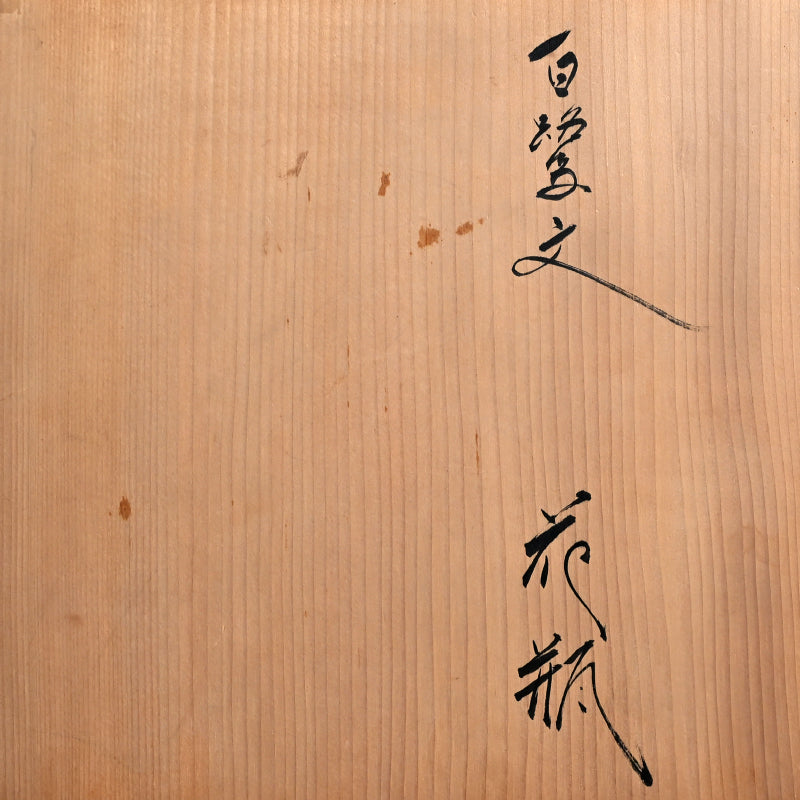 百鷺文 花瓶